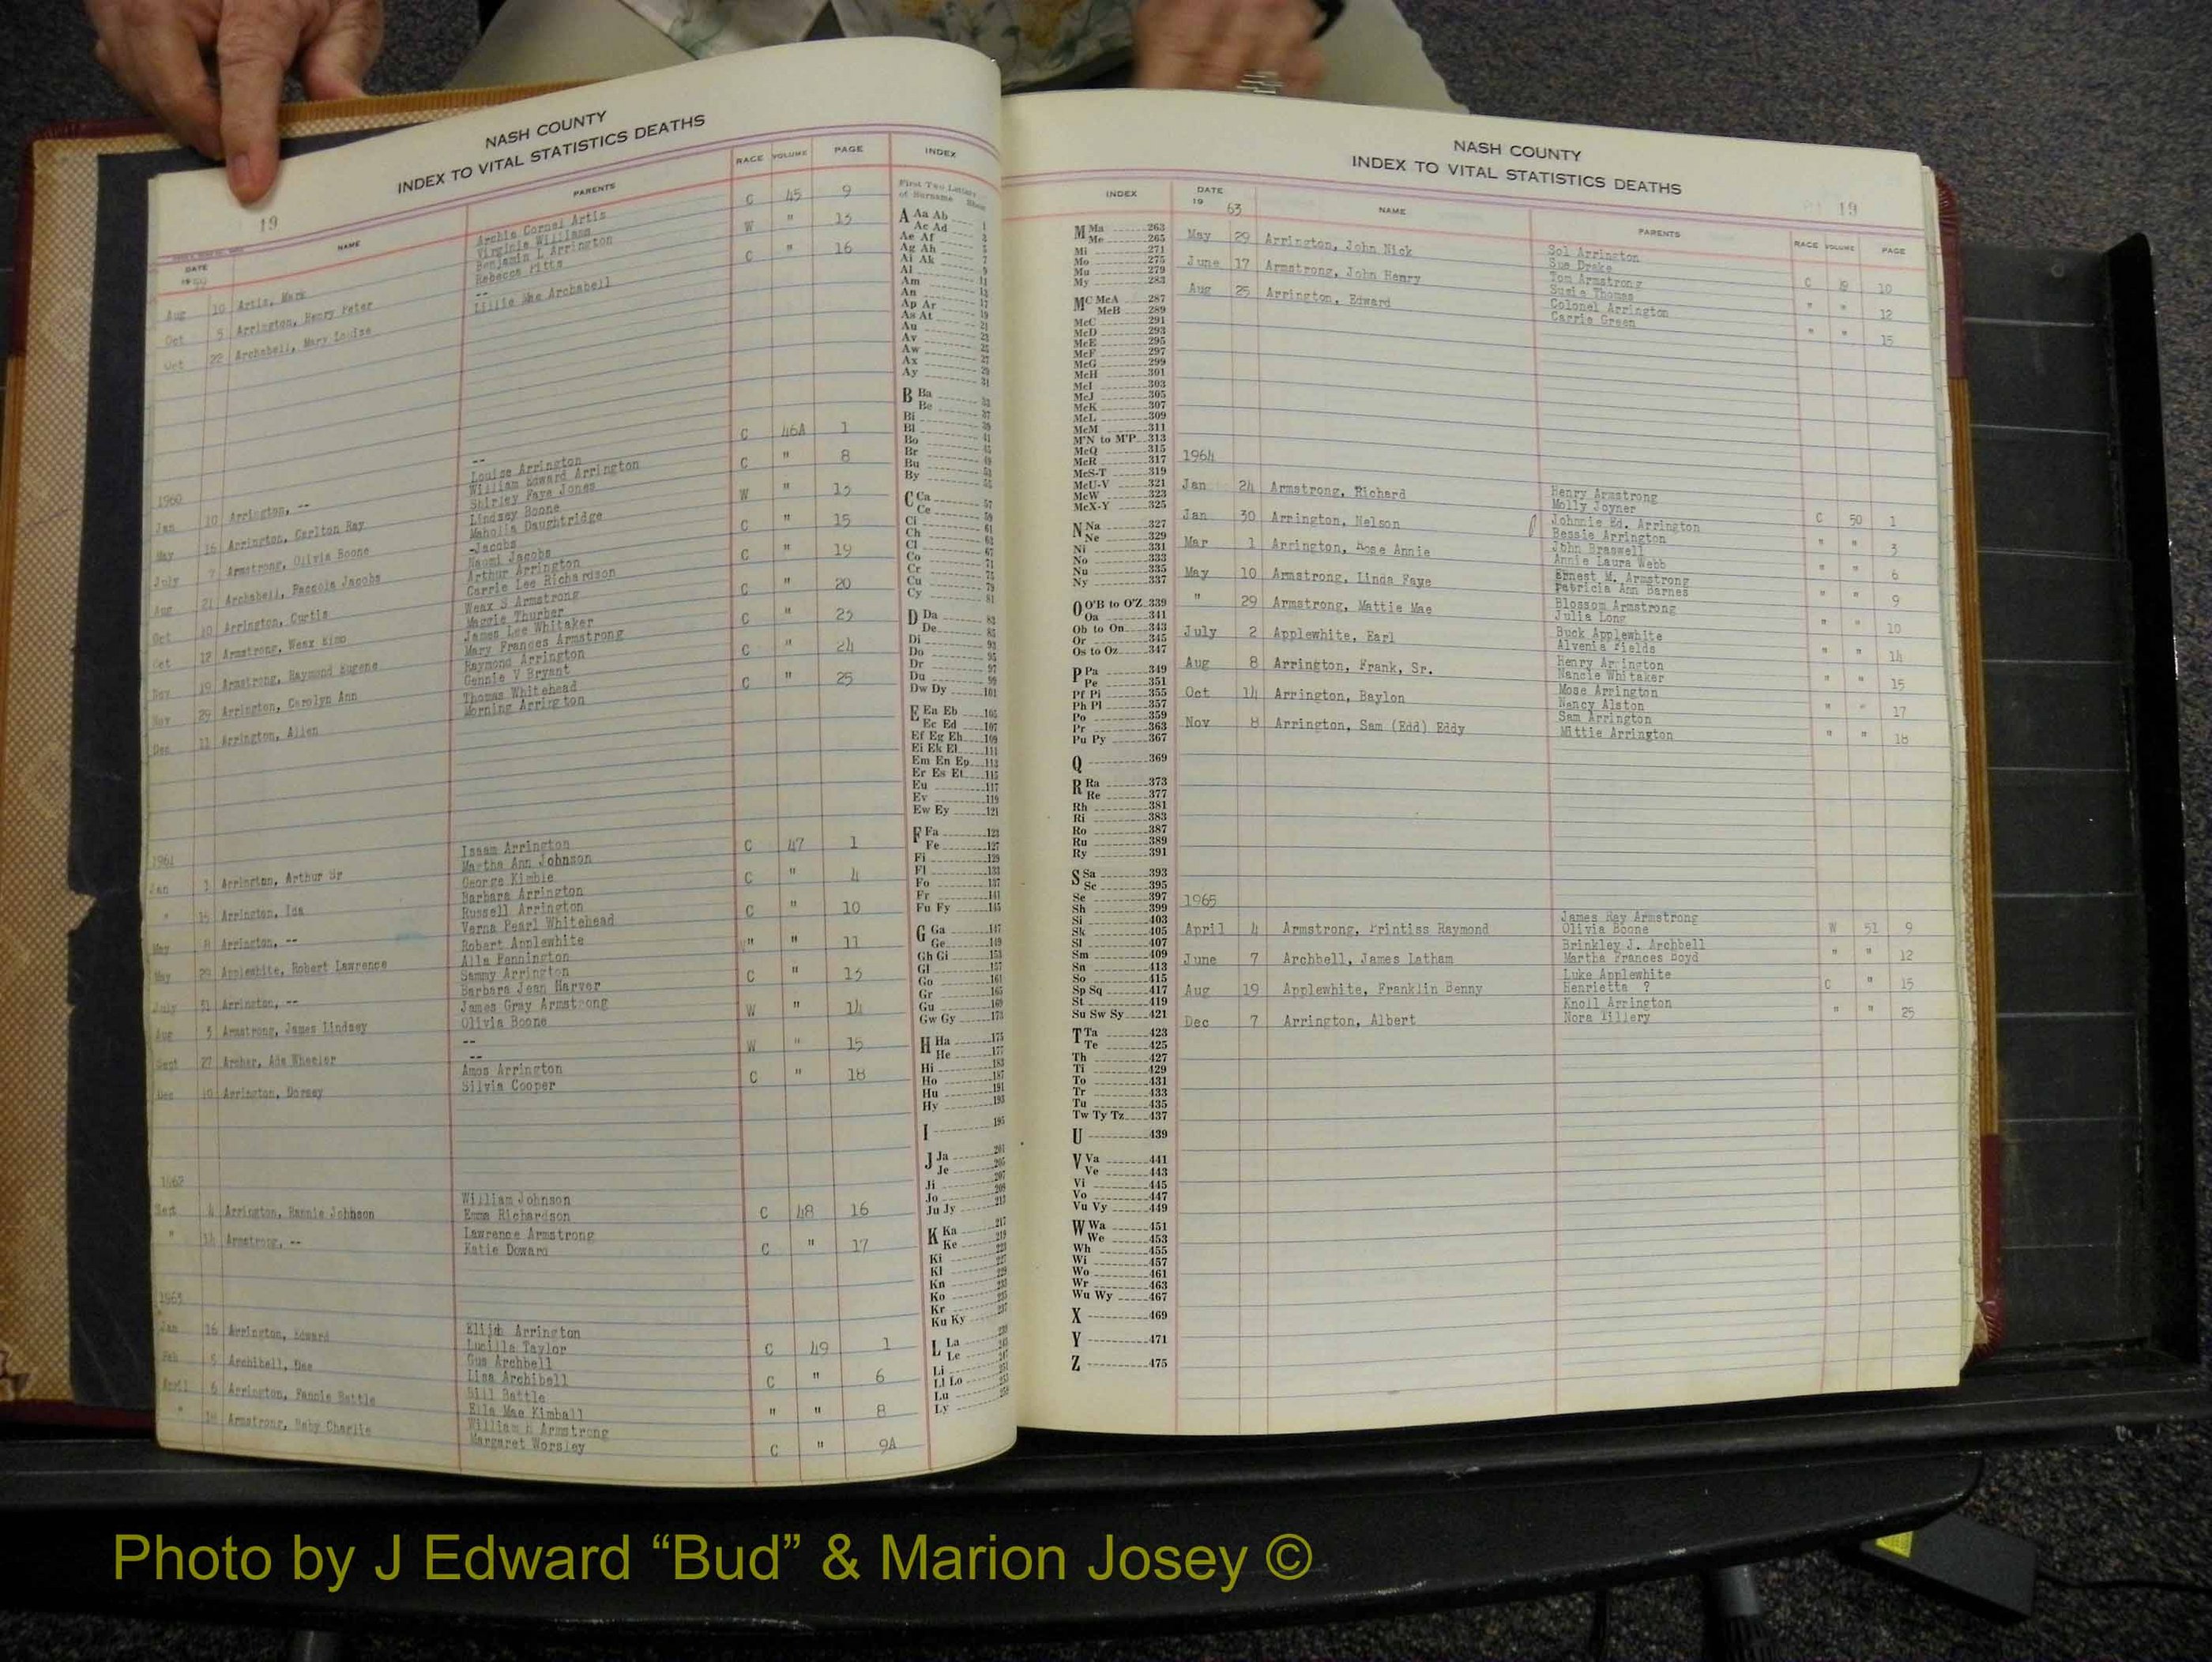 NASH COUNTY
INDEX TO VITAL STATISTICS DEATHS
19
DATE NAME PARENTS RACE VOLUME PAGE
Aug 10 Artis, Mark Archie Cornel Artis C 45 9
Virginia Williams
Oct 5 Arrington, Henry Peter Benjamin L Arrington W " 13
Rebecca Pitts
Oct 22 Archabell, Mary Louise -- C " 16
Lillie Mae Archabell
1960
Jan 10 Arrington, -- -- C 46A 1
Louise Arrington
May 16 Arrington, Carlton Ray William Edward Arrington C " 8
Shirley Faye Jones
July 7 Armstrong, Olivia Boone Lindsey Boone W " 13
Daughtridge
Aug 21 Archabell, Jacobs -Jacobs C " 15
Naomi Jacobs
Oct 10 Arrington, Curtis Arthur Arrington C " 19
Carrie Lee Richardson
Oct 12 Armstrong, Weax Weax S Armstrong C " 20
Maggie Thurber
Nov 19 Armstrong, Raymond Eugene James Lee Whitaker C " 23
Mary Frances Armstrong
Nov 29 Arrington, Carolyn Ann Raymond Arrington C " 24
Gennie V Bryant
Dec 11 Arrington, Allen Thomas Whitehead C " 25
Morning Arrington
1961
Jan 1 Arrington, Arthur Sr Isaam Arrington C 47 1
Martha Ann Johnson
" 15 Arrington, Ida George Kimble C " 4
Barbara Arrington
May 8 Arrington, -- Russell Arrington C " 10
Verna Pearl Whitehead
May 29 Applewhite, Robert Lawrence Robert Applewhite W" " 11
Alla Pennington
July 31 Arrington, -- Sammy Arrington C " 13
Barbara Jean Harver
Aug 5 Armstrong, James Lindsey James Gray Armstrong W " 14
Olivia Boone
Sept 27 Archer, Ada Wheeler -- W " 15
--
Dec 10 Arrington, Dorsey Amos Arrington C " 18
Silvia Cooper
1962
Sept 4 Arrington, Nannie Johnson William Johnson C 48 16
Emma Richardson
" 14 Armstrong, -- Lawrence Armstrong C " 17
Katie Doward
1963
Jan 16 Arrington, Edward Elijah Arrington C 49 1
Lucilla Taylor
Feb 5 Archibell, Dee Gus Archbell C " 6
Lisa Archibell
April 6 Arrington, Fannie Battle Bill Battle " " 8
Ella Mae Kimball
" 18 Armstrong, Baby Charlie William H Armstrong C " 9A
Margaret Worsley
INDEX
First Two Letters
of Surname Sheet
A Aa Ab 1
Ac Ad 3
Ae Af 5
Ag Ah 7
Ai Ak 9
Al 11
Am 13
An 17
Ap Ar 19
As At 21
Au 23
Av 25
Aw 27
Ax 29
Ay 31
B Ba 33
Be 37
Bi 39
Bl 41
Bo 45
Br 49
Bu 53
By 55
C Ca 57
Ce 59
Ci 61
Ch 63
Cl 67
Co 71
Cr 75
Cu 79
Cy 81
D Da 83
De 85
Di 93
Do 95
Dr 97
Du 99
Dw Dy 101
E Ea Eb 105
Ec Ed 107
Ef Eg Eh 109
Ei Ek El 111
Em En Ep 113
Er Es Et 115
Eu 117
Ev 119
Ew Ey 121
F Fa 123
Fe 127
Fi 129
Fl 133
Fo 137
Fr 141
Fu Fy 145
G Ga 147
Ge 149
Gh Gi 153
Gl 157
Go 161
Gr 165
Gu 169
Gw Gy 173
H Ha 175
He 177
Hi 183
Ho 187
Hu 191
Hy 193
I 195
J Ja 201
Je 205
Ji 207
Jo 209
Ju Jy 213
K Ka 217
Ke 219
Ki 223
Kl 227
Kn 229
Ko 233
Kr 235
Ku Ky 237
L La 239
Le
Li
Ll Lo
Lu
Ly
NASH COUNTY
INDEX TO VITAL STATISTICS DEATHS
19
INDEX
M Ma 263
Me 265
Mi 271
Mo 275
Mu 279
My 283
MC McA 287
McB 289
McC 291
McD 293
McE 295
McF 297
McG 299
McH 301
McI 303
McJ 305
McK 307
McL 309
McM 311
M'N to M'P 313
McQ 315
McR 317
McS-T 319
McU-V 321
McW 323
McX-Y 325
N Na 327
Ne 329
Ni 331
No 333
Nu 335
Ny 337
O O'B to O'Z 339
Oa 341
Ob to On 343
Or 345
Os to Oz 347
P Pa 349
Pe 351
Pf Pi 355
Ph Pl 357
Po 359
Pr 363
Pu Py 367
Q 369
R Ra 373
Re 377
Rh 381
Ri 383
Ro 387
Ru 389
Ry 391
S Sa 393
Sc 395
Se 397
Sh 399
Si 403
Sk 405
Sl 407
Sm 409
Sn 413
So 415
Sp Sq 417
St 419
Su Sw Sy 421
T Ta 423
Te 425
Th 427
Ti 429
To 431
Tr 433
Tu 435
Tw Ty Tz 437
U 439
V Va 441
Ve 443
Vi 445
Vo 447
Vu Vy 449
W Wa 451
We 453
Wh 455
Wi 457
Wo 461
Wr 463
Wu Wy 467
X 469
Y 471
Z 475
DATE NAME PARENTS RACE VOLUME PAGE
19 63
May 29 Arrington, John Nick Sol Arrington C 49 10
Sue Drake
June 17 Armstrong, John Henry Tom Armstrong " " 12
Susie Thomas
Aug 25 Arrington, Edward Colonel Arrington " " 15
Carrie Green
1964
Jan 24 Armstrong, Richard Henry Armstrong C 50 1
Molly Joyner
Jan 30 Arrington, Nelson Johnnie Ed. Arrington " " 3
Bessie Arrington
Mar 1 Arrington, Rose Annie John Braswell " " 6
Annie Laura Webb
May 10 Armstrong, Linda Faye Ernest M. Armstrong " " 9
Patricia Ann Barnes
" 29 Armstrong, Mattie Mae Blossom Armstrong " " 10
Julia Long
July 2 Applewhite, Earl Buck Applewhite " " 14
Alvenia Fields
Aug 8 Arrington, Frank, Sr. Henry Arrington " " 15
Nancie Whitaker
Oct 14 Arrington, Baylon Mose Arrington " " 17
Nancy Alston
Nov 8 Arrington, Sam (Edd) Eddy Sam Arrington " " 18
Mittie Arrington
1965
April 4 Armstrong, Printiss Raymond James Ray Armstrong W 51 9
Olivia Boone
June 7 Archbell, James Latham Brinkley J. Archbell " " 12
Martha Frances Boyd
Aug 19 Applewhite, Franklin Benny Luke Applewhite C " 15
Henrietta ?
Dec 7 Arrington, Albert Knoll Arrington " " 25
Nora Tillery
Photo by J Edward “Bud” & Marion Josey ©